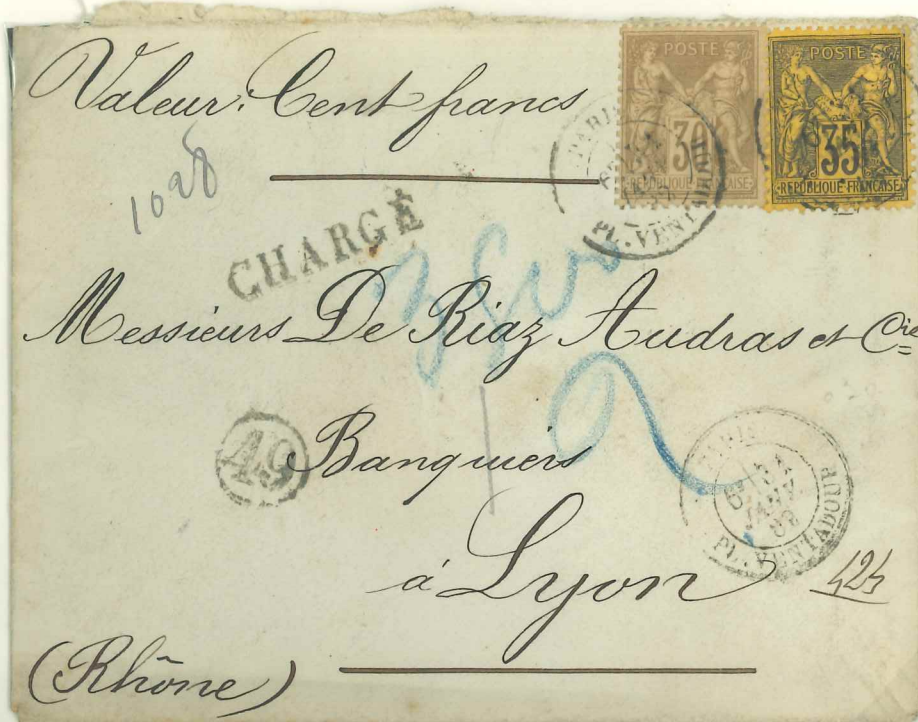 Valeur: Cent francs
POSTE
30
REPUBLIQUE FRANÇAISE
POSTE
35
REPUBLIQUE FRANÇAISE
PARIS
PL. VENTADOUR
CHARGÉ
Messieurs De Riaz Audras et Cie
49
Banquiers
PARIS
JANV.
PL. VENTADOUR
à Lyon
424
(Rhône)